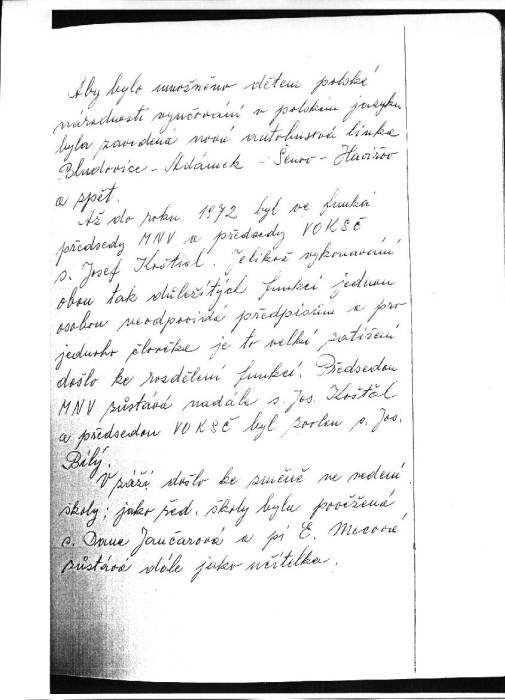 Aby bylo umožněno dětem polské
národnosti vyučování v polském jazyku
byla zavedená nová autobusová linka
Bludovice - Adámek - Šenov - Havířov
a zpět.
Až do roku 1972 byl ve funkci
předsedy MNV a předsedy VOKSČ
s. Josef Košťál. Jelikož vykonávání
obou tak důležitých funkcí jednou
osobou neodpovídá předpisům a pro
jednoho člověka je to velké zatížení
došlo ke rozdělení funkcí. Předsedou
MNV zůstává nadále s. Jos. Košťál
a předsedou VOKSČ byl zvolen s. Jos.
Bílý.
V září došlo ke změně ve vedení
školy; jako řed. školy byla pověřená
s. Dana Jančarová a pí E.
zůstává dále jako učitelka.